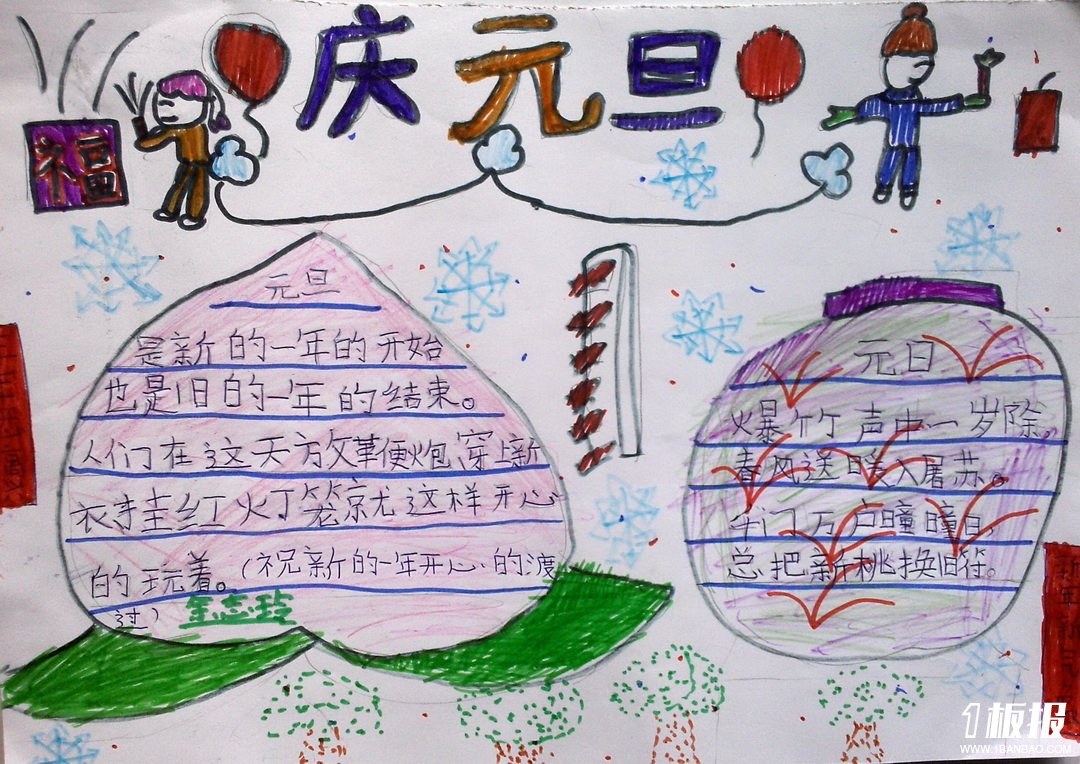 庆元旦
福
元旦
是新的一年的开始
也是旧的一年的结束。
人们在这天放鞭炮穿上新
衣挂红灯笼就这样开心
的玩着。(祝新的一年开心的渡
过)
元日
爆竹声中一岁除,
春风送暖入屠苏。
千门万户曈曈日,
总把新桃换旧符。
1板报
WWW.1BANBAO.COM